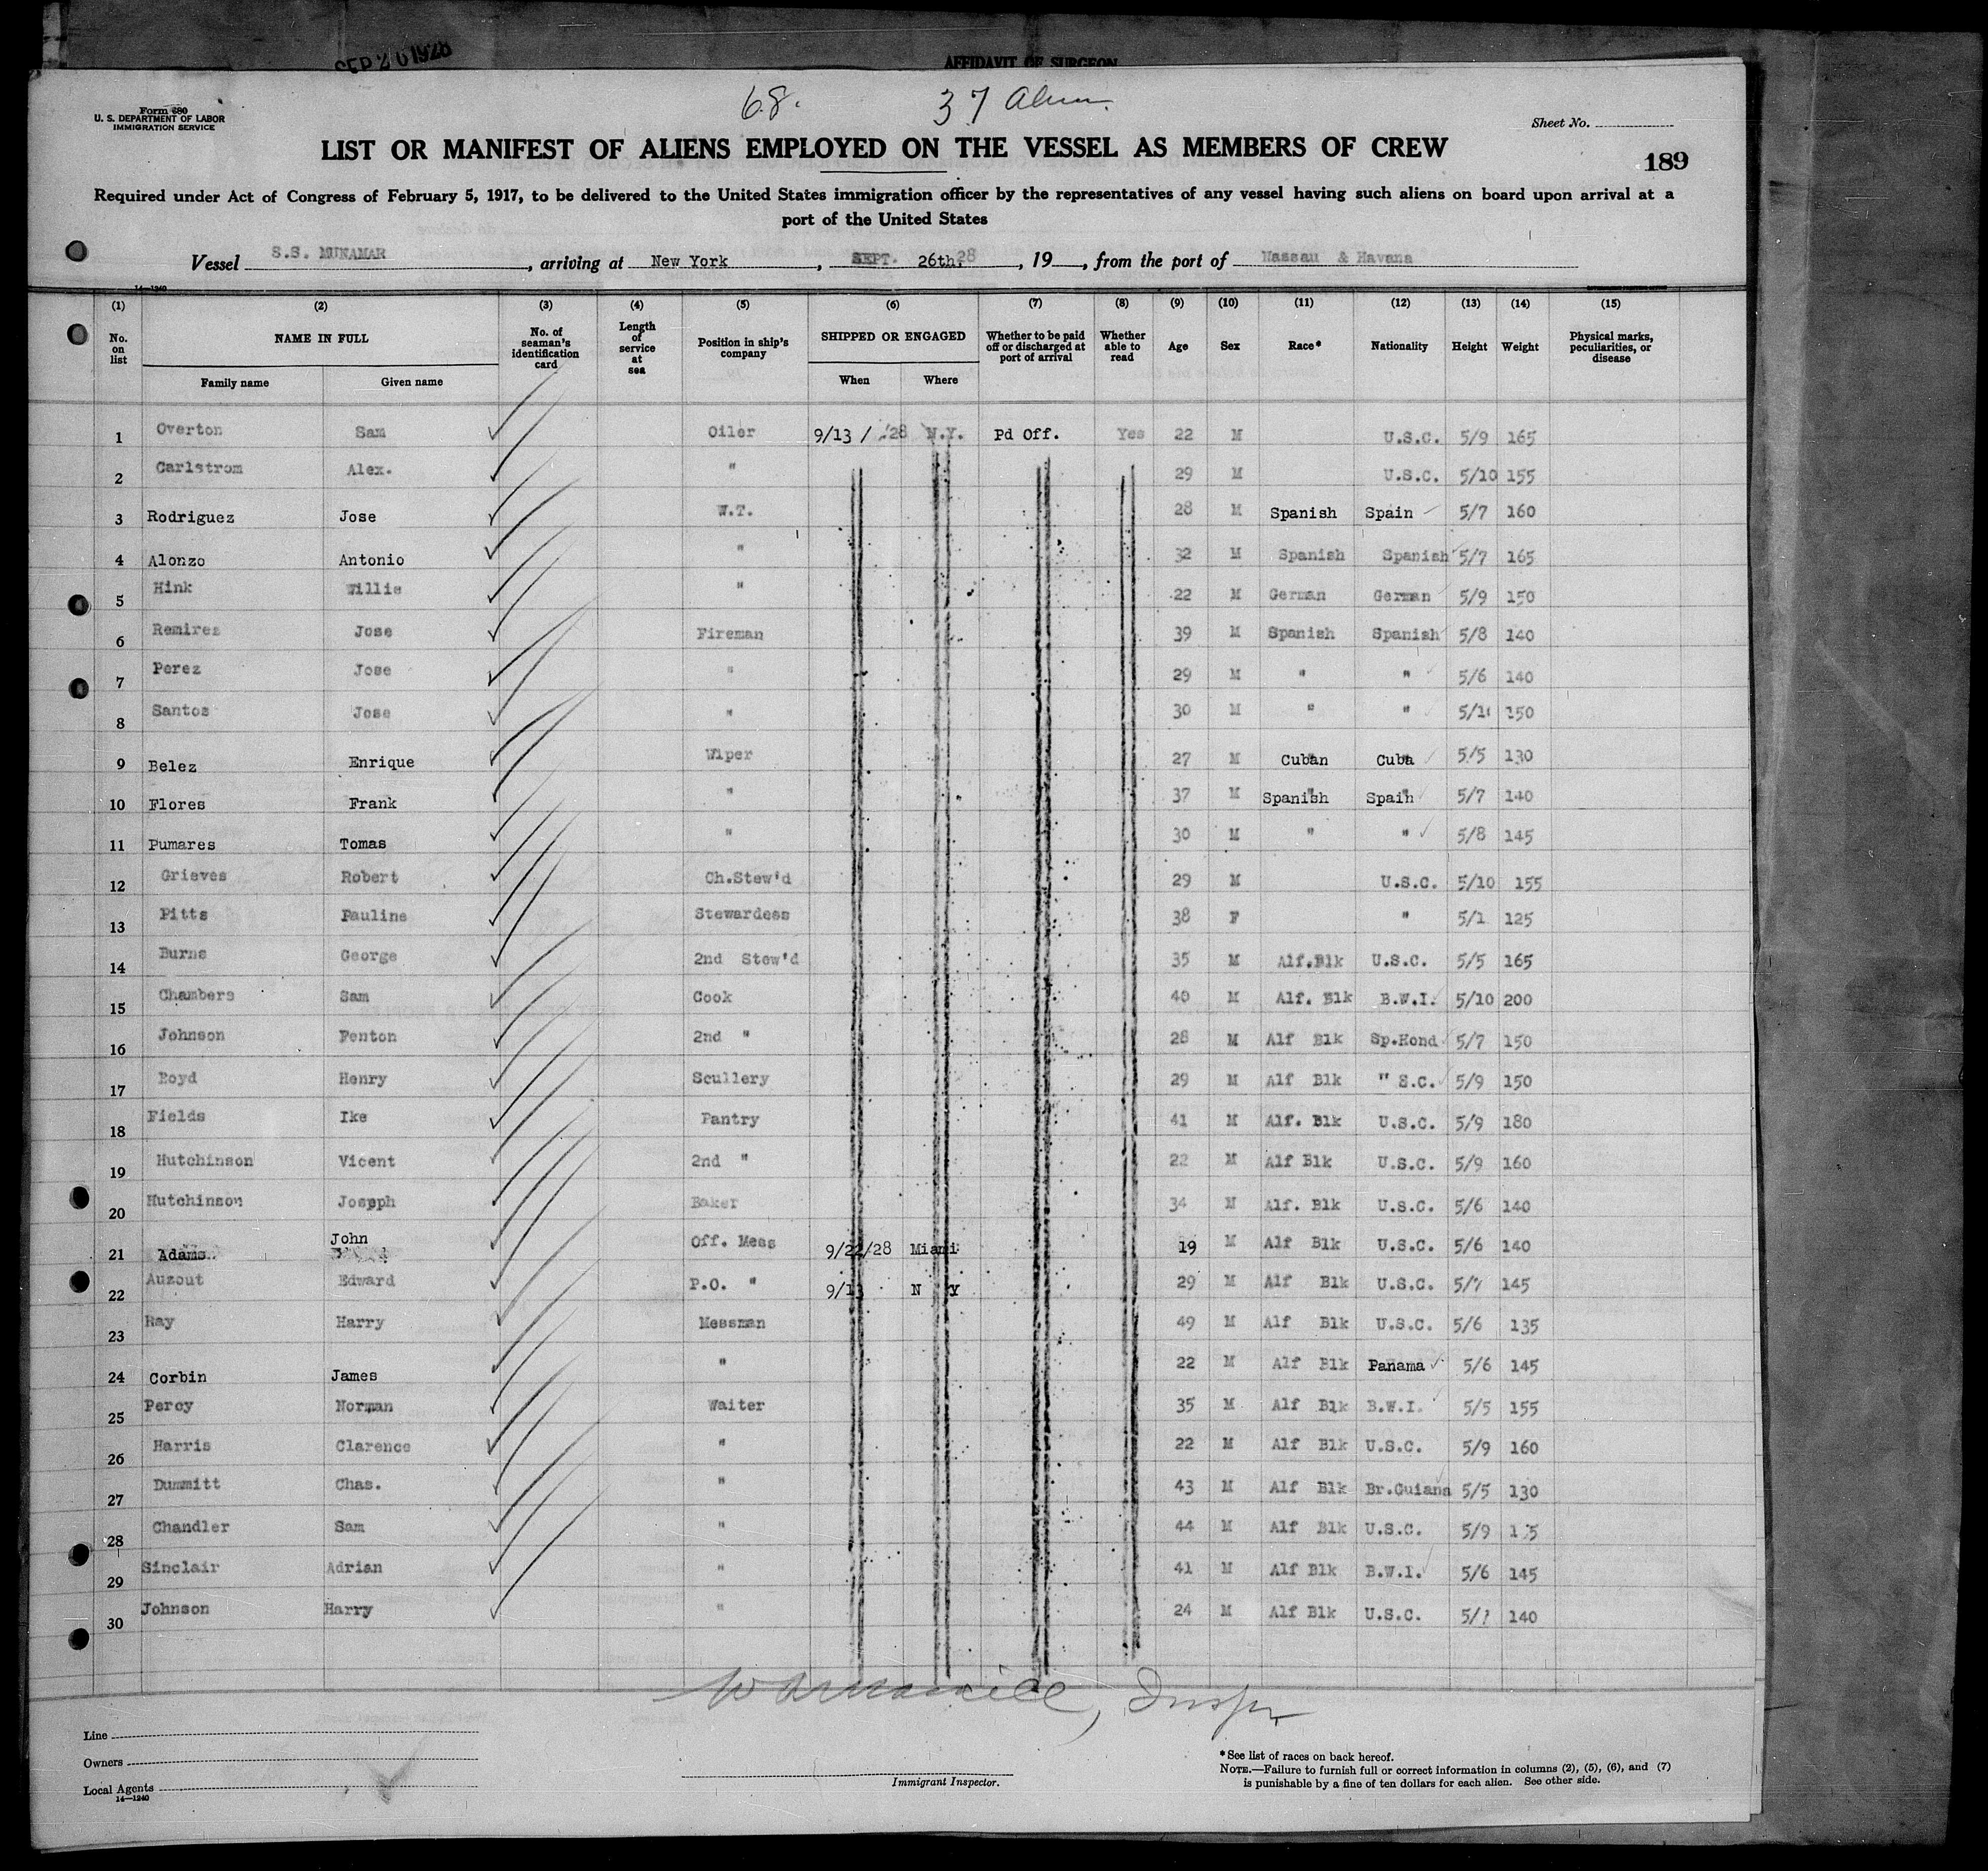 SEP 26 1928
AFFIDAVIT OF SURGEON
68. 37
Form 680
U. S. DEPARTMENT OF LABOR
IMMIGRATION SERVICE
Sheet No.
LIST OR MANIFEST OF ALIENS EMPLOYED ON THE VESSEL AS MEMBERS OF CREW
189
Required under Act of Congress of February 5, 1917, to be delivered to the United States immigration officer by the representatives of any vessel having such aliens on board upon arrival at a
port of the United States
Vessel S.S. MUNAMAR, arriving at New York, SEPT. 26th. 28, 19, from the port of Nassau & Havana
14—1240
(1) (2) (3) (4) (5) (6) (7) (8) (9) (10) (11) (12) (13) (14) (15)
No. on list NAME IN FULL No. of seaman's identification card Length of service at sea Position in ship's company SHIPPED OR ENGAGED Whether to be paid off or discharged at port of arrival Whether able to read Age Sex Race* Nationality Height Weight Physical marks, peculiarities, or disease
Family name Given name When Where
1 Overton Sam Oiler 9/13 / '28 N.Y. Pd Off. Yes 22 M U.S.C. 5/9 165
2 Carlstrom Alex. " 29 M U.S.C. 5/10 155
3 Rodriguez Jose W.T. 28 M Spanish Spain 5/7 160
4 Alonzo Antonio " 32 M Spanish Spanish 5/7 165
5 Hink Willie " 22 M German German 5/9 150
6 Remirez Jose Fireman 39 M Spanish Spanish 5/8 140
7 Perez Jose " 29 M " " 5/6 140
8 Santos Jose " 30 M " " 150
9 Belez Enrique Wiper 27 M Cuban Cuba 5/5 130
10 Flores Frank " 37 M Spanish Spain 5/7 140
11 Pumares Tomas " 30 M " " 5/8 145
12 Grieves Robert Ch.Stew'd 29 M U.S.C. 5/10 155
13 Pitts Pauline Stewardess 38 F " 5/1 125
14 Burns George 2nd Stew'd 35 M Alf.Blk U.S.C. 5/5 165
15 Chambers Sam Cook 40 M Alf. Blk B.W.I. 5/10 200
16 Johnson Fenton 2nd " 28 M Alf Blk Sp.Hond 5/7 150
17 Boyd Henry Scullery 29 M Alf Blk " S.C. 5/9 150
18 Fields Ike Pantry 41 M Alf. Blk U.S.C. 5/9 180
19 Hutchinson Vicent 2nd " 22 M Alf Blk U.S.C. 5/9 160
20 Hutchinson Joseph Baker 34 M Alf. Blk U.S.C. 5/6 140
21 Adams John Off. Mess 9/22/28 Miami 19 M Alf Blk U.S.C. 5/6 140
22 Auzout Edward P.O. " 9/13 N Y 29 M Alf Blk U.S.C. 5/7 145
23 Ray Harry Messman 49 M Alf Blk U.S.C. 5/6 135
24 Corbin James " 22 M Alf Blk Panama 5/6 145
25 Percy Norman Waiter 35 M Alf Blk B.W.I. 5/5 155
26 Harris Clarence " 22 M Alf Blk U.S.C. 5/9 160
27 Dummitt Chas. " 43 M Alf Blk Br.Guiana 5/5 130
28 Chandler Sam " 44 M Alf Blk U.S.C. 5/9
29 Sinclair Adrian " 41 M Alf Blk B.W.I. 5/6 145
30 Johnson Harry " 24 M Alf Blk U.S.C. 140
Line
Owners
Local Agents
14—1240
Immigrant Inspector.
*See list of races on back hereof.
NOTE.—Failure to furnish full or correct information in columns (2), (5), (6), and (7)
is punishable by a fine of ten dollars for each alien. See other side.